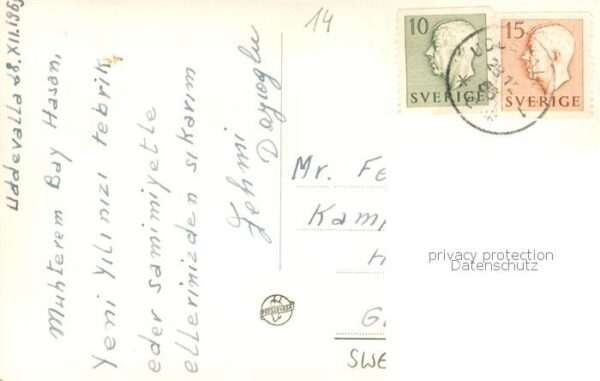 Uddevalla 28.XII.195
Muhterem Bay Hasan,
Yeni Yılınızı tebrik
eder samimiyetle
ellerinizden sıkarım
Fehmi
14
10
SVERIGE
15
SVERIGE
Mr. Fe
Kam
G
SWE
privacy protection
Datenschutz